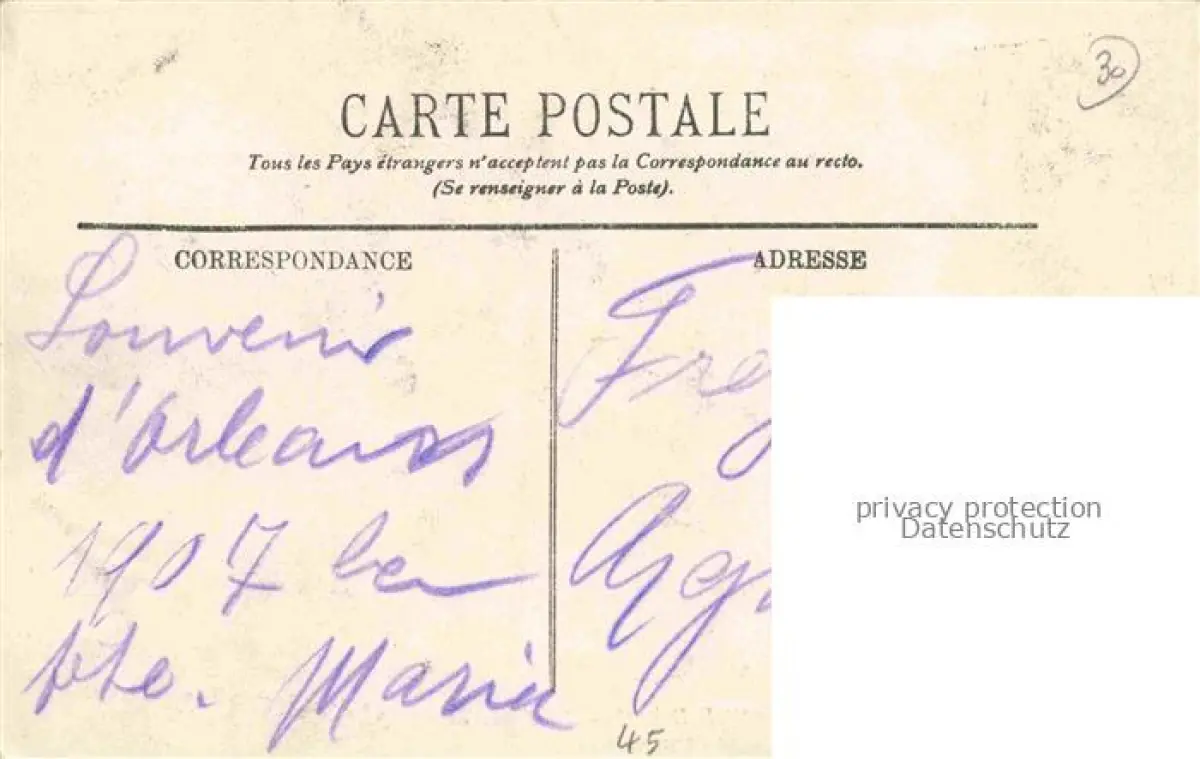 30
CARTE POSTALE
Tous les Pays étrangers n'acceptent pas la Correspondance au recto.
(Se renseigner à la Poste).
CORRESPONDANCE
Souvenir
d'Orleans
1907 la
fete. Maria
ADRESSE
privacy protection
Datenschutz
45